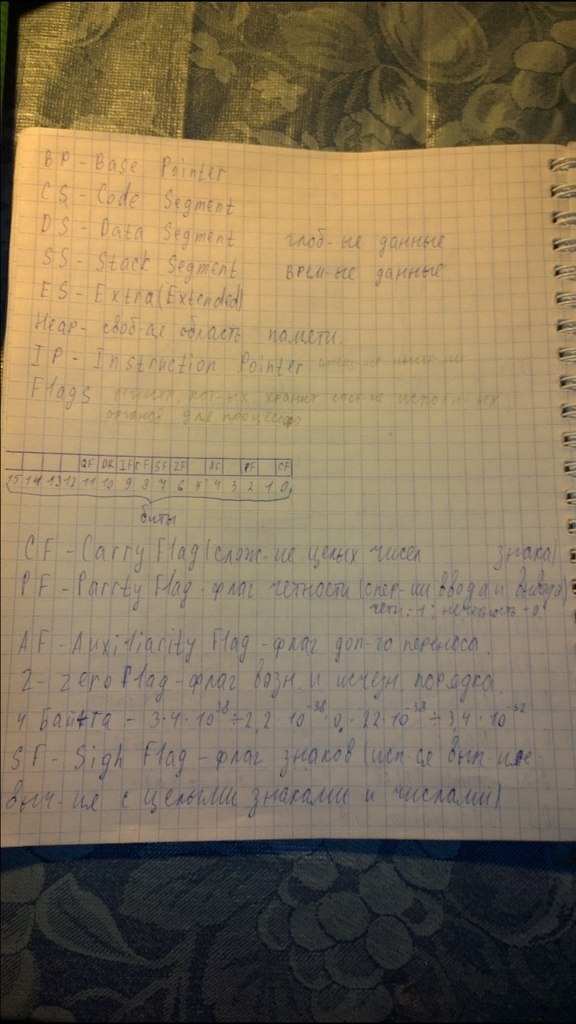 BP - Base Pointer
CS - Code Segment
DS - Data Segment глоб-ые данные
SS - Stack Segment врем-ые данные
ES - Extra (Extended)
Heap - своб-ая область памяти.
IP - Instruction Pointer
Flags кот-ых хранит сост-ие
для
OF DR IF SF ZF AF PF CF
15 14 13 12 11 10 9 8 7 6 5 4 3 2 1 0
биты
CF - Carry Flag (слож-ие целых чисел знака)
PF - Parrty Flag - флаг четности (опер-ии ввода и вывода)
четн. - 1; нечетность - 0.
AF - Auxiliarity Flag - флаг доп-го переноса.
Z - Zero Flag - флаг возн. и исчезн. порядка
4 Байта - 3.4 · 10³⁸ ÷ 2,2 · 10⁻³⁸ 0. 22 · 10⁻³⁸ ÷ 3,4 · 10⁻³²
SF - Sigh Flag - флаг знаков (исп-ся
выч-ия с целыми знаками и числами)